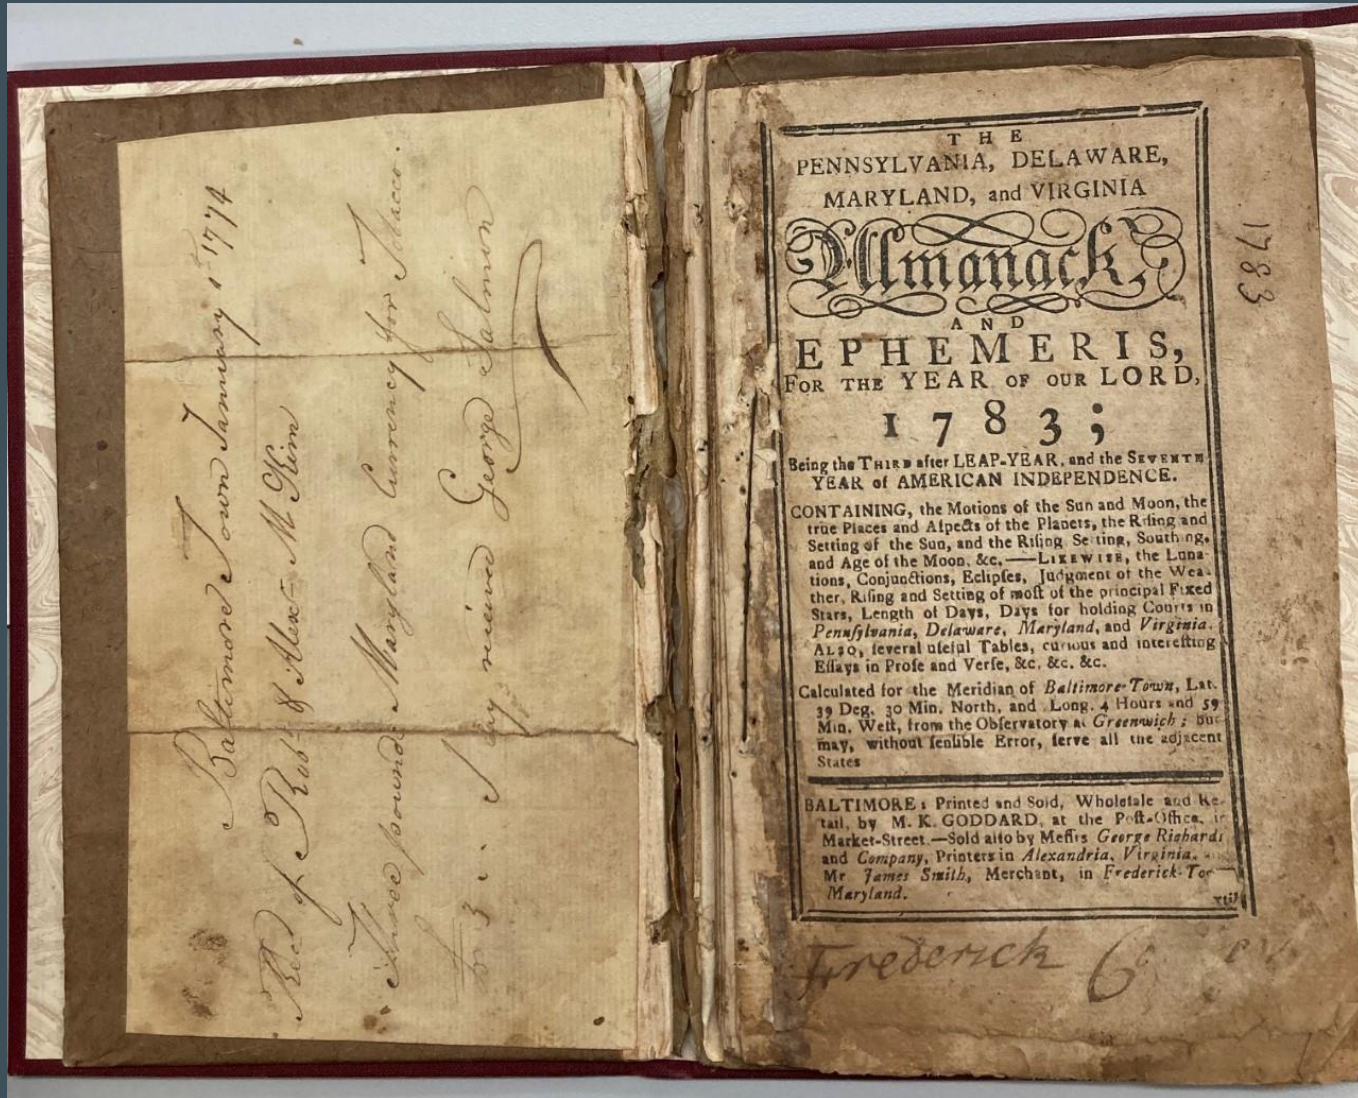 Baltimore Town January 1st 1774
Recd of Robt & Alexr McKim
Three pounds Maryland Currency for Tobacco.
£ 3 : I say received George Salmon
THE
PENNSYLVANIA, DELAWARE,
MARYLAND, and VIRGINIA
Almanack,
AND
EPHEMERIS,
FOR THE YEAR OF OUR LORD,
1783;
Being the THIRD after LEAP-YEAR, and the SEVENTH
YEAR of AMERICAN INDEPENDENCE.
CONTAINING, the Motions of the Sun and Moon, the
true Places and Aſpects of the Planets, the Riſing and
Setting of the Sun, and the Riſing, Setting, Southing,
and Age of the Moon, &c.——LIKEWISE, the Luna-
tions, Conjunctions, Eclipſes, Judgment of the Wea-
ther, Riſing and Setting of moſt of the principal Fixed
Stars, Length of Days, Days for holding Courts in
Pennſylvania, Delaware, Maryland, and Virginia.
ALSO, ſeveral uſeful Tables, curious and intereſting
Eſſays in Proſe and Verſe, &c. &c. &c.
Calculated for the Meridian of Baltimore-Town, Lat.
39 Deg. 30 Min. North, and Long. 4 Hours and 59
Min. Weſt, from the Obſervatory at Greenwich; but
may, without ſenſible Error, ſerve all the adjacent
States
BALTIMORE: Printed and Sold, Wholeſale and Re-
tail, by M. K. GODDARD, at the Poſt-Office, in
Market-Street.—Sold alſo by Meſſrs George Richards
and Company, Printers in Alexandria, Virginia,
Mr James Smith, Merchant, in Frederick-To
Maryland.
1783
Frederick